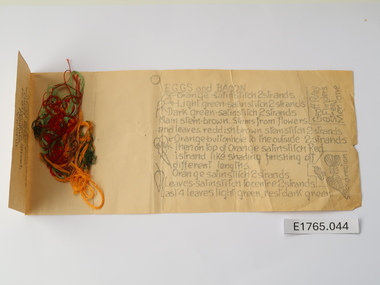 EGGS and BACON
Orange satin stitch 2 strands
Light green satin stitch 2 strands
Dark green satin stitch 2 strands
Main stem brown, stems from flowers
and leaves reddish brown stem stitch 2 strands
Orange buttonhole to line outside 2 strands
Then on top of Orange satin stitch Red
1 strand like shading finishing at
different lengths
Orange satin stitch 2 strands
Leaves satin stitch to centre 2 strands
Last 4 leaves light green, rest dark green
E1765.044